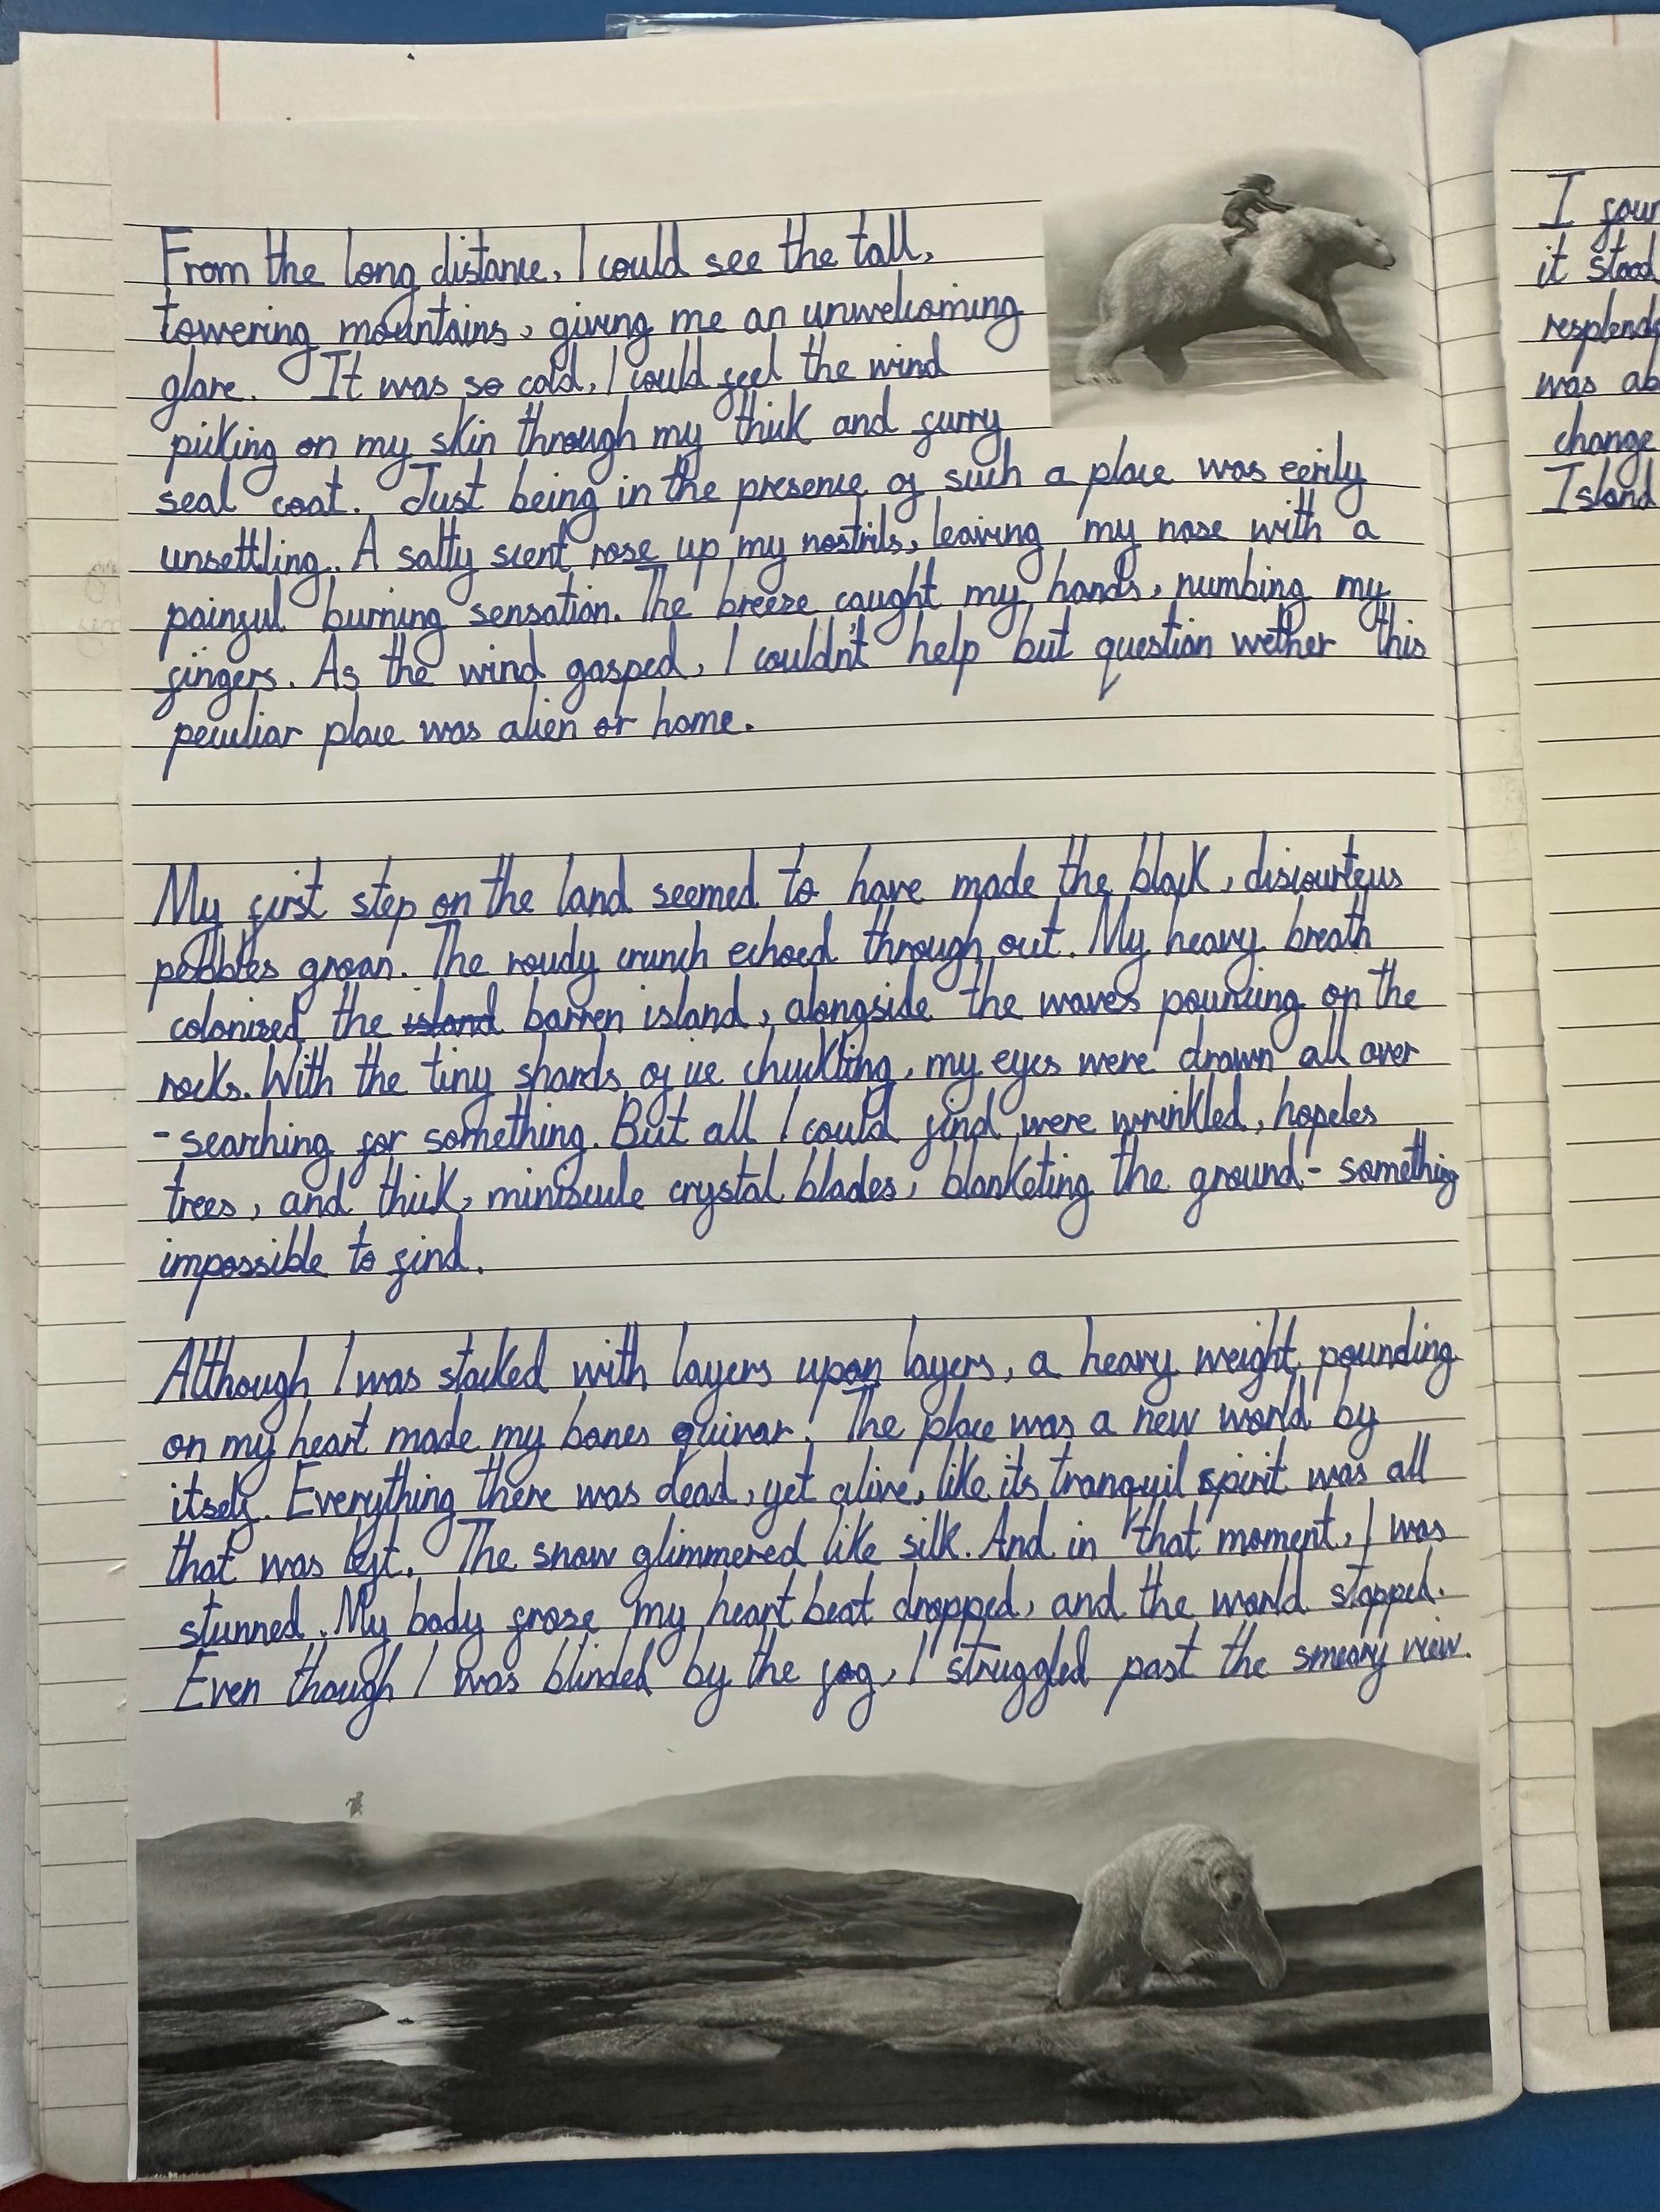 From the long distance, I could see the tall,
towering mountains, giving me an unwelcoming
glare. It was so cold, I could feel the wind
picking on my skin through my thick and furry
seal coat. Just being in the presence of such a place was eerily
unsettling. A salty scent rose up my nostrils, leaving my nose with a
painful burning sensation. The breeze caught my hands, numbing my
fingers. As the wind gasped, I couldn't help but question wether this
peculiar place was alien or home.
My first step on the land seemed to have made the black, discourteus
pebbles groan. The roudy crunch echoed through out. My heavy breath
colonised the island barren island, alongside the waves pouncing on the
rocks. With the tiny shards of ice chuckling, my eyes were drawn all over
- searching for something. But all I could find were wrinkled, hopeles
trees, and thick, miniscule crystal blades, blanketing the ground - something
impossible to find.
Although I was stacked with layers upon layers, a heavy weight pounding
on my heart made my bones quivar. The place was a new world by
itself. Everything there was dead, yet alive, like its tranquil spirit was all
that was left. The snow glimmered like silk. And in that moment, I was
stunned. My body froze my heart beat dropped, and the world stopped.
Even though I was blinded by the fog, I struggled past the smeary view.
I
it stood
was
change
Island